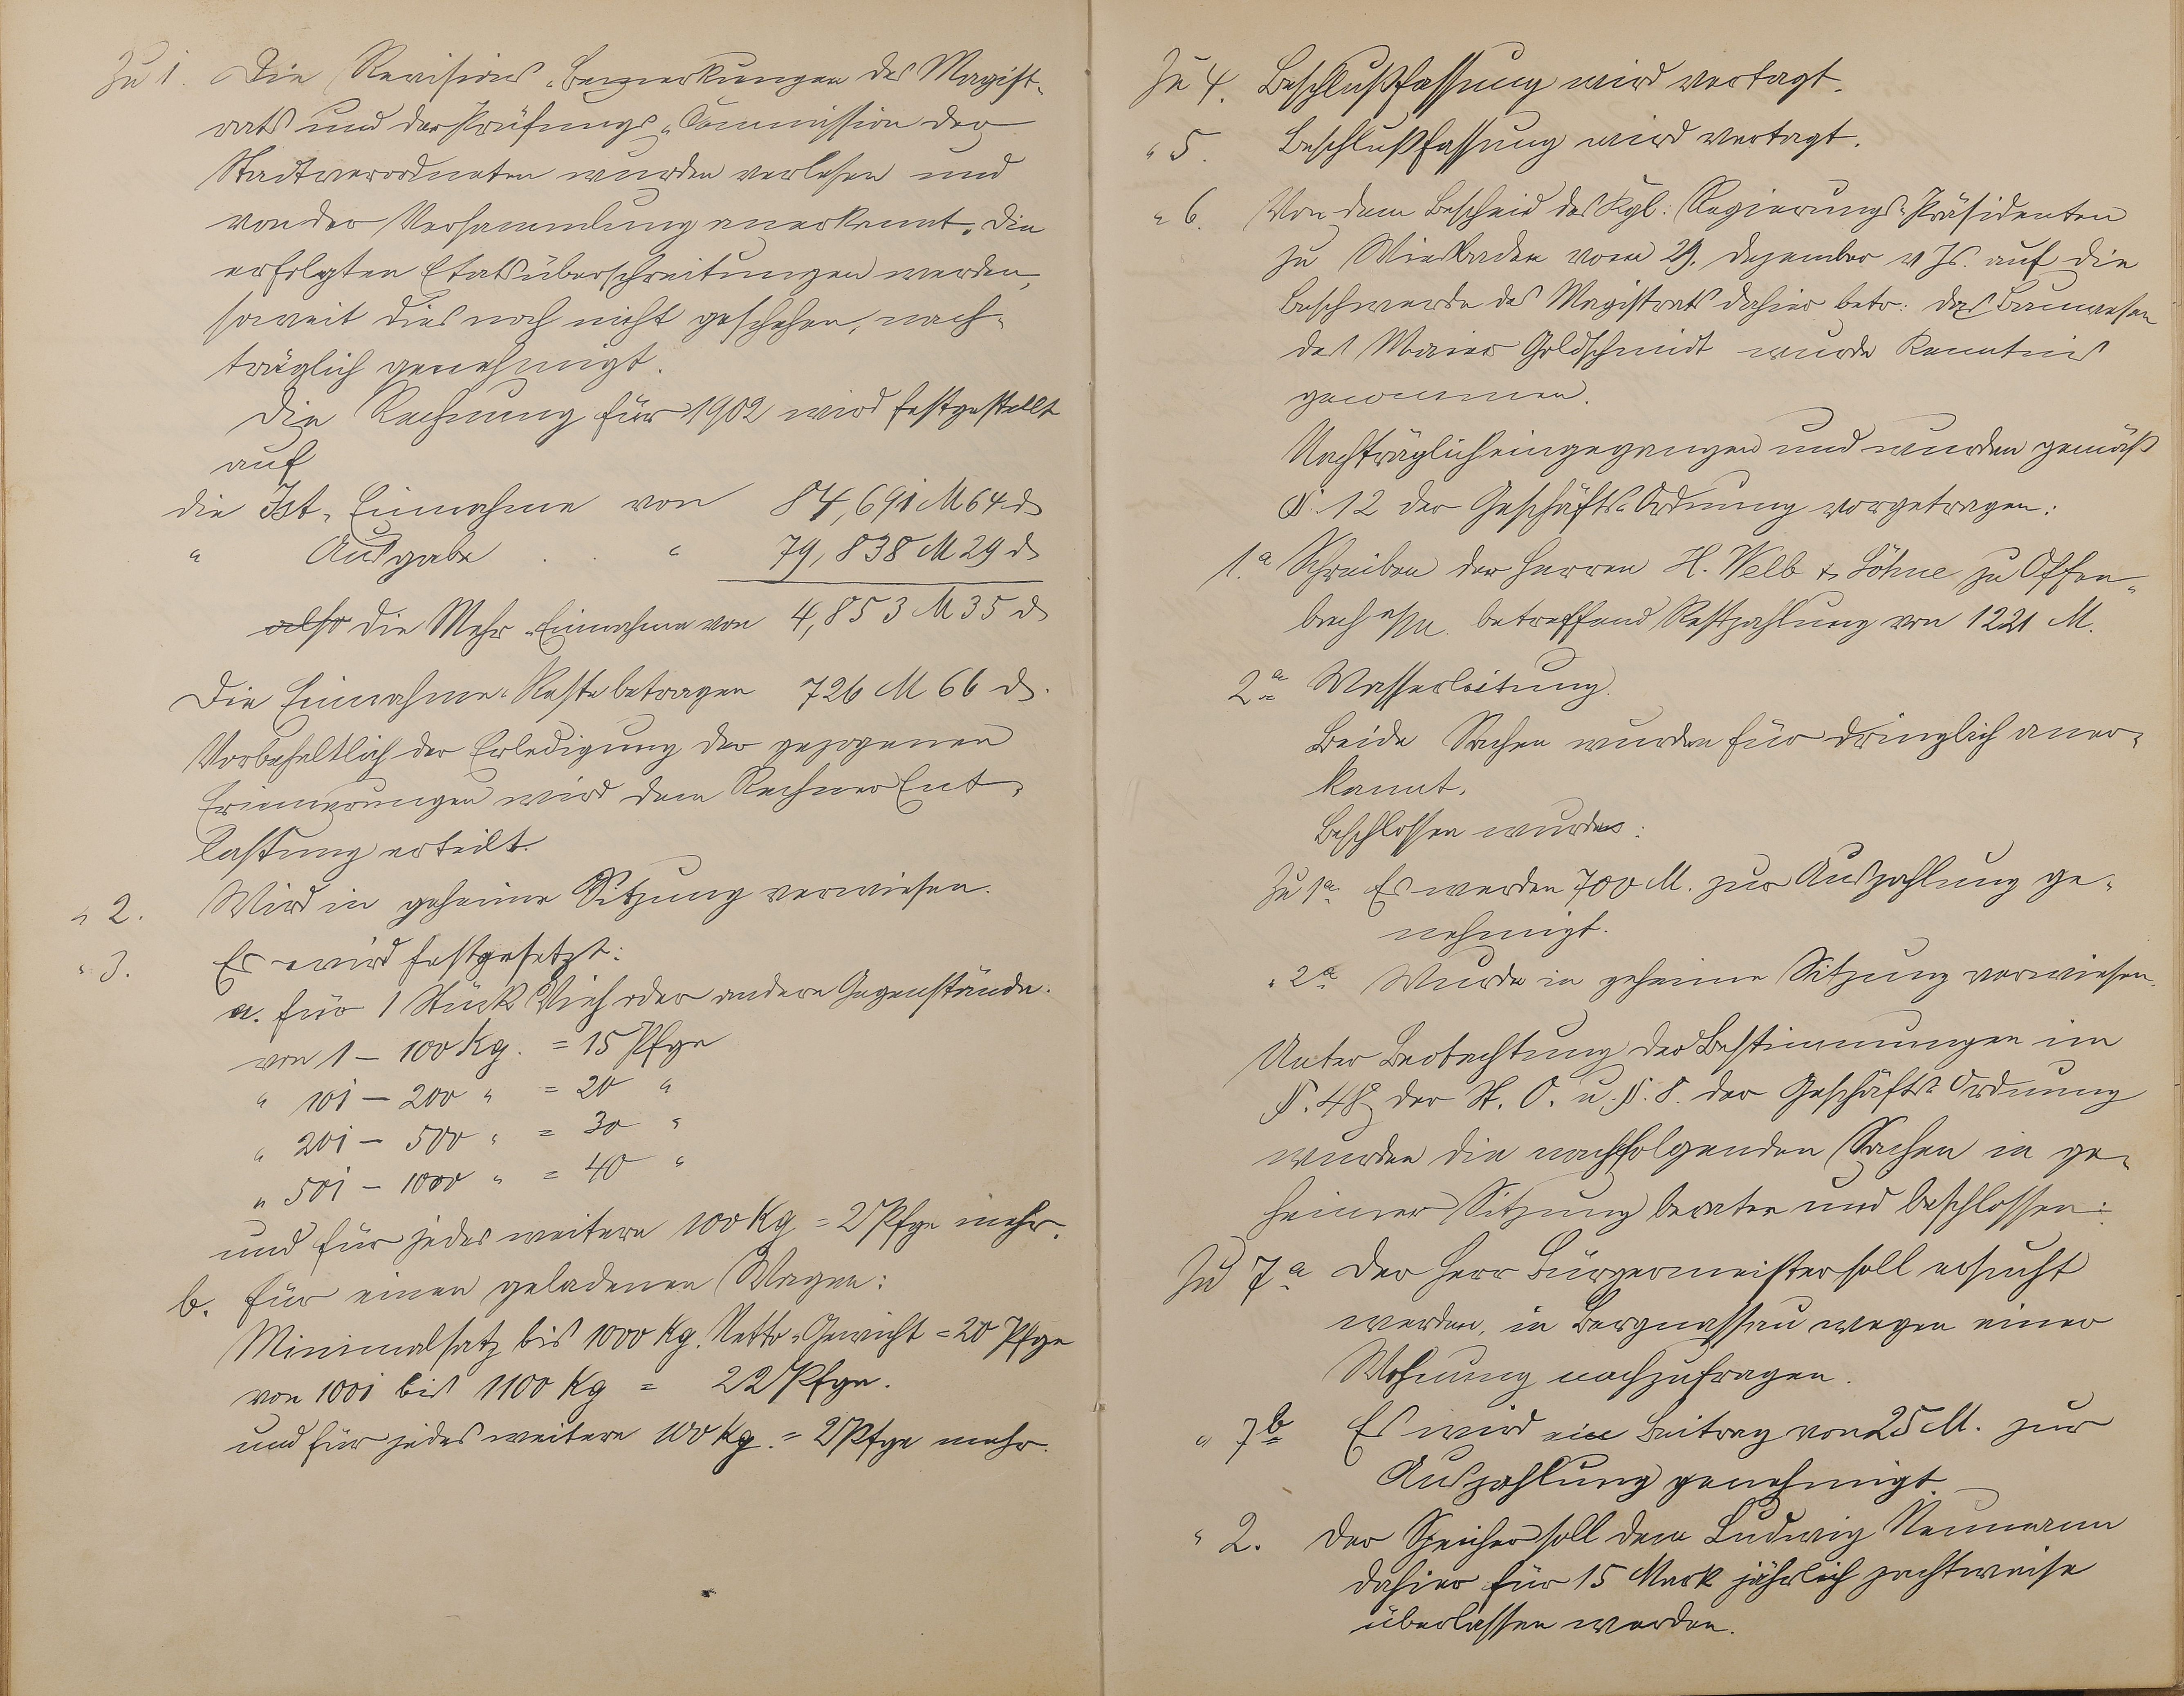 Zu 1. Die Revisions-Bemerkungen des Magist-
rats und der Prüfungs-Commission der
Stadtverordneten wurden verlesen und
von der Versammlung anerkannt. Die
erfolgten Etatsüberschreitungen werden,
soweit dies noch nicht geschehen, nach-
träglich genehmigt.
Die Rechnung für 1902 wird festgestellt
auf
die Ist-Einnahme von 84,691 M 64 ₰
" Ausgabe . . " 79,838 M 29 ₰
also die Mehr-Einnahme von 4,853 M 35 ₰
Die Einnahme-Reste betragen 726 M 66 ₰.
Vorbehaltlich der Erledigung der gezogenen
Erinnerungen wird dem Rechner Ent-
lastung erteilt.
" 2. Wird in geheime Sitzung verwiesen.
" 3. Es wird festgesetzt:
a. für 1 Stück Vieh oder andere Gegenstände.
von 1 – 100 Kg. = 15 Pfge
" 101 – 200 " = 20 "
" 201 – 500 " = 30 "
" 501 – 1000 " = 40 "
und für jedes weitere 100 Kg = 2 Pfge mehr.
b. für einen geladenen Wagen:
Minimalsatz bis 1000 Kg. Netto-Gewicht = 20 Pfge
von 1001 bis 1100 Kg = 22 Pfge.
und für jedes weitere 100 Kg. = 2 Pfge mehr.
Zu 4. Beschlußfassung wird vertagt.
" 5. Beschlußfassung wird vertagt.
" 6. Von dem Bescheid des Kgl: Regierungs-Präsidenten
zu Wiesbaden vom 29. Dezember v Js. auf die
Beschwerde des Magistrats dahier betr: das Bauwesen
des Maier Goldschmidt wurde Kenntnis
genommen.
Nachträglich eingegangen und wurden gemäß
§. 12 der Geschäfts-Ordnung vorgetragen:
1.a Schreiben der Herren H. Velb & Söhne zu Offen-
bach a/M. betreffend Restzahlung von 1221 M.
2a Wasserleitung.
Beide Sachen wurden für dringlich aner-
kannt.
Beschlossen wurde:
Zu 1a Es werden 700 M. zur Auszahlung ge-
nehmigt.
" 2a Wurde in geheime Sitzung verwiesen.
Unter Beobachtung der Bestimmungen im
§. 48 der St. O. u. §. 8. der Geschäfts-Ordnung
wurden die nachfolgenden Sachen in ge-
heimer Sitzung beraten und beschlossen:
Zu 7a Der Herr Bürgermeister soll ersucht
werden, in Bergnassau wegen einer
Wohnung nachzufragen.
" 7b Es wird ein Beitrag von 25 M. zur
Auszahlung genehmigt.
" 2. Der Speicher soll dem Ludwig Neumann
dahier für 15 Mark jährlich pachtweise
überlassen werden.